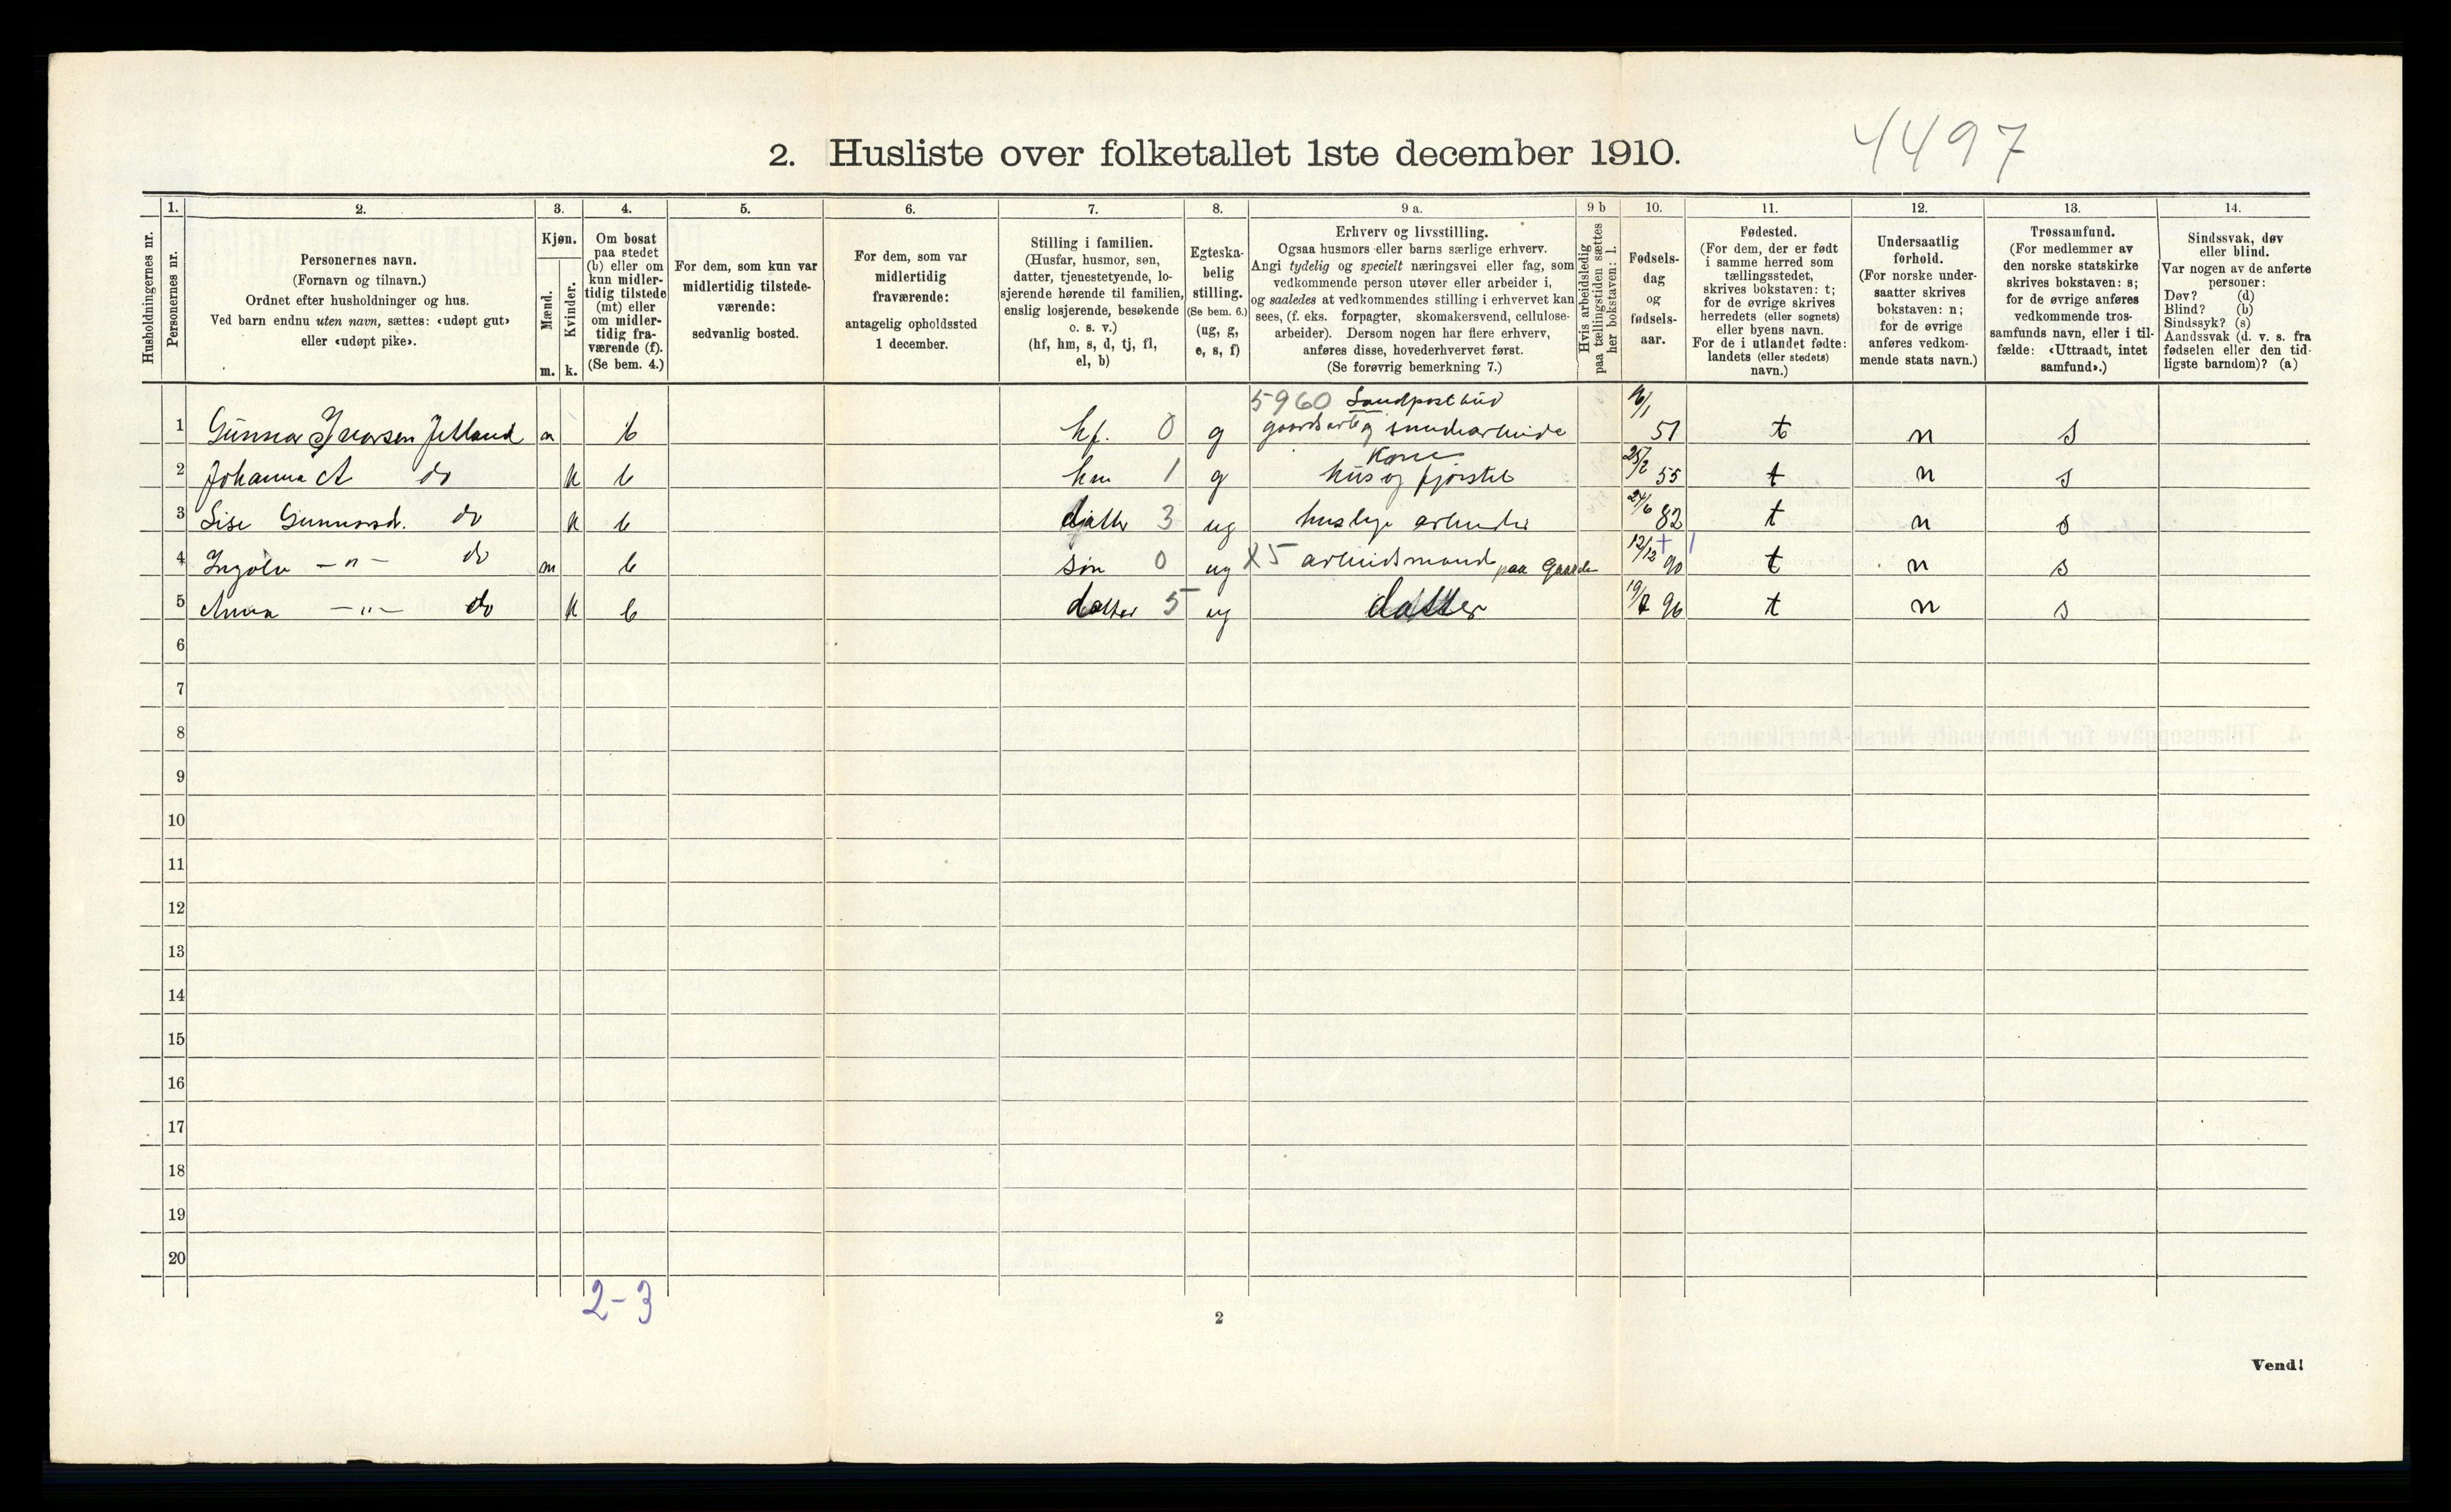 2. Husliste over folketallet 1ste december 1910.
4497
Husholdningernes nr.
1.
Personernes nr.
2.
Personernes navn.
(Fornavn og tilnavn.)
Ordnet efter husholdninger og hus.
Ved barn endnu uten navn, sættes: «udøpt gut»
eller «udøpt pike».
3.
Kjøn.
Mænd.
Kvinder.
m. k.
4.
Om bosat
paa stedet
(b) eller om
kun midler-
tidig tilstede
(mt) eller
om midler-
tidig fra-
værende (f).
(Se bem. 4.)
5.
For dem, som kun var
midlertidig tilstede-
værende:
sedvanlig bosted.
6.
For dem, som var
midlertidig
fraværende:
antagelig opholdssted
1 december.
7.
Stilling i familien.
(Husfar, husmor, søn,
datter, tjenestetyende, lo-
sjerende hørende til familien,
enslig losjerende, besøkende
o. s. v.)
(hf, hm, s, d, tj, fl,
el, b)
8.
Egteska-
belig
stilling.
(Se bem. 6.)
(ug, g,
e, s, f)
9 a.
Erhverv og livsstilling.
Ogsaa husmors eller barns særlige erhverv.
Angi tydelig og specielt næringsvei eller fag, som
vedkommende person utøver eller arbeider i,
og saaledes at vedkommendes stilling i erhvervet kan
sees, (f. eks. forpagter, skomakersvend, cellulose-
arbeider). Dersom nogen har flere erhverv,
anføres disse, hovederhvervet først.
(Se forøvrig bemerkning 7.)
9 b
Hvis arbeidsledig
paa tællingstiden sættes
her bokstaven: l.
10.
Fødsels-
dag
og
fødsels-
aar.
11.
Fødested.
(For dem, der er født
i samme herred som
tællingsstedet,
skrives bokstaven: t;
for de øvrige skrives
herredets (eller sognets)
eller byens navn.
For de i utlandet fødte:
landets (eller stedets)
navn.)
12.
Undersaatlig
forhold.
(For norske under-
saatter skrives
bokstaven: n;
for de øvrige
anføres vedkom-
mende stats navn.)
13.
Trossamfund.
(For medlemmer av
den norske statskirke
skrives bokstaven: s;
for de øvrige anføres
vedkommende tros-
samfunds navn, eller i til-
fælde: «Uttraadt, intet
samfund».)
14.
Sindssvak, døv
eller blind.
Var nogen av de anførte
personer:
Døv? (d)
Blind? (b)
Sindssyk? (s)
Aandssvak (d. v. s. fra
fødselen eller den tid-
ligste barndom)? (a)
5960 Landpostbud
1 Gunnar Ivarsen Jetland m b hf. 0 g 51 t n s
Kone
2 Johanna A do k b hm 1 g hus og fjørstel 25/2 55 t n s
3 Lise Gunnarsd. do k b datter 3 ug huslige arbeider 24/6 82 t n s
4 Ingolv -"- do m b søn 0 ug X5 arbeidsmand paa Gaarden 12/12 90 t n s
5 Anna -"- do k b datter 5 ug datter 96 t n s
6
7
8
9
10
11
12
13
14
15
16
17
18
19
20
2-3
2
Vend!